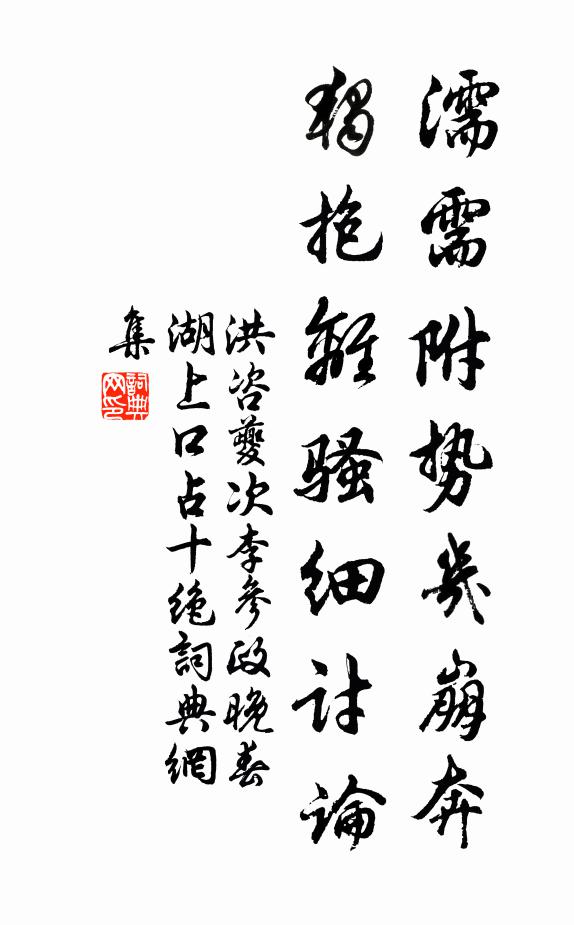 濡需附势几崩奔
独抱离骚细讨论
洪咨夔次李参政晚春
湖上口占十绝词典网
集
词典网印